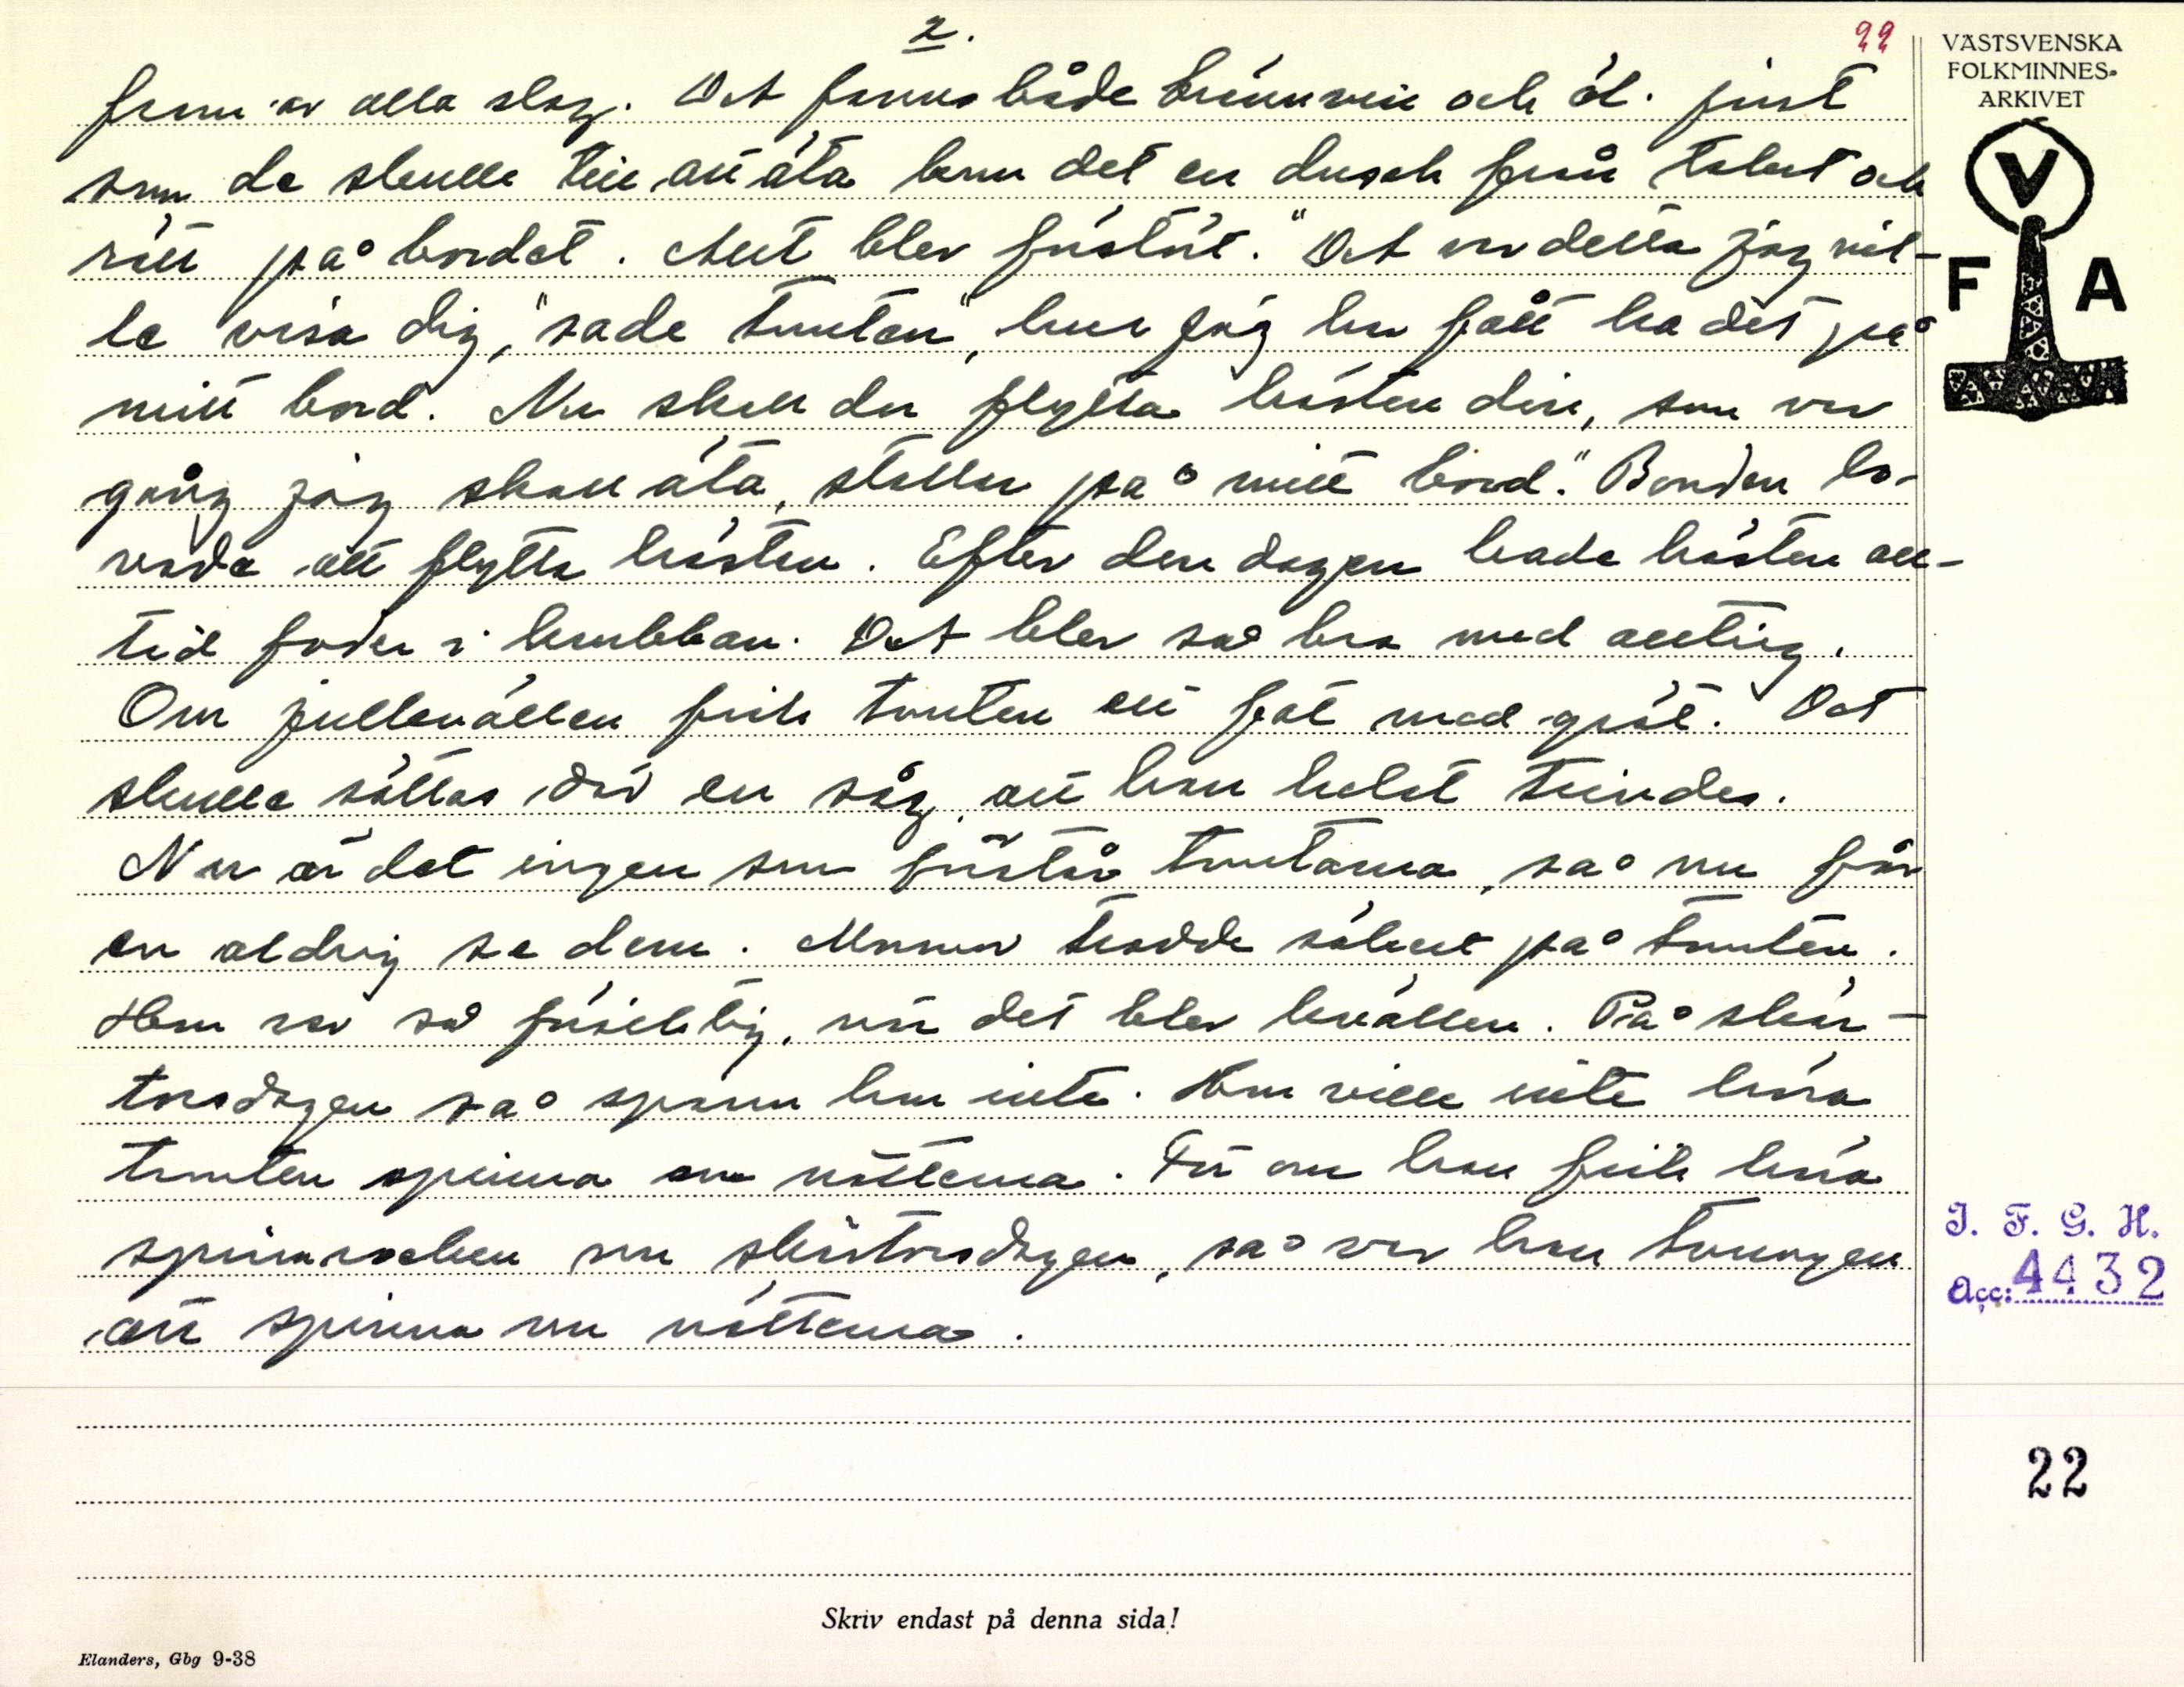 2.
22
VÄSTSVENSKA
FOLKMINNES-
ARKIVET
V
F A
fram av alla slag. Det fanns både brännvin och öl. Just
som de skulle till att äta kom det en dusch från taket och
rätt på bordet. Allt blev förstört. "Det var detta jag vil-
le visa dig," sade tomten, "hur jag har fått ha det på
mitt bord. Nu skall du flytta hästen din, som var
gång jag skall äta, stallar på mitt bord." Bonden lo-
vade att flytta hästen. Efter den dagen hade hästen all-
tid foder i krubban. Det blev så bra med allting.
Om julkvällen fick tomten ett fat med gröt. Det
skulle sättas där en såg att han helst trivdes.
Nu är det ingen som förstår tomtarna, så nu får
en aldrig se dem. Mormor trodde säkert på tomten.
Hon var så försiktig, när det blev kvällen. På skär-
torsdagen så spann hon inte. Hon ville inte höra
tomten spinna om nätterna. För om han fick höra
spinnrocken om skärtorsdagen, så var han tvungen
att spinna om nätterna.
I. F. G. H.
Acc: 4432
22
Skriv endast på denna sida!
Elanders, Gbg 9-38